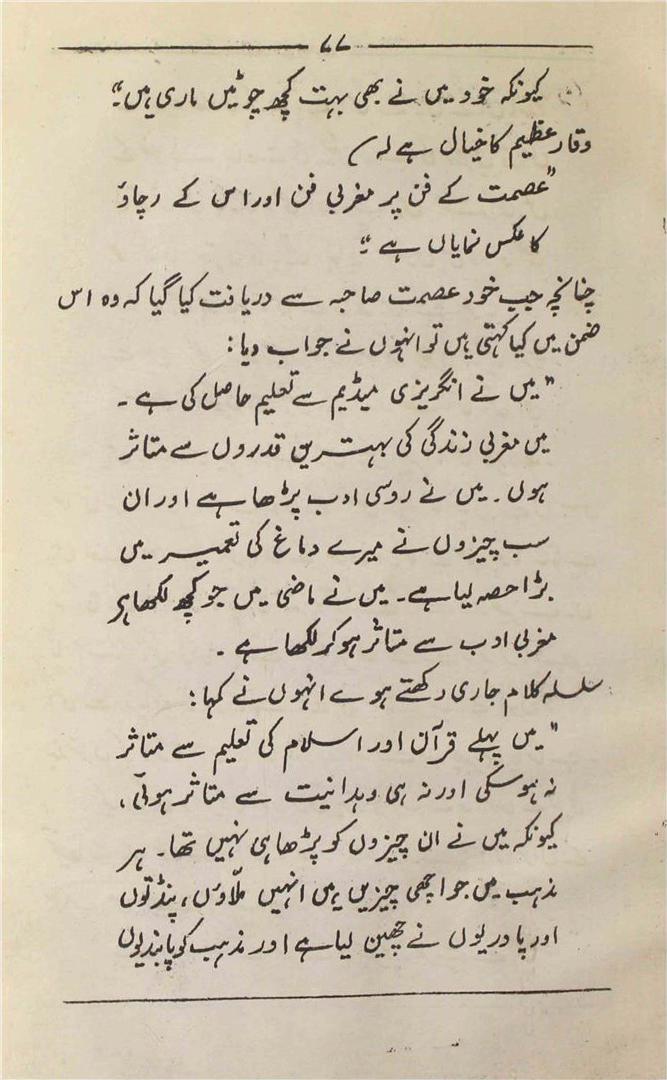 ۷۷
کیونکہ خود میں نے بھی بہت کچھ چوٹیں ماری ہیں۔"
وقار عظیم کا خیال ہے کہ
"عصمت کے فن پر مغربی فن اور اس کے رچاؤ
کا عکس نمایاں ہے۔"
چنانچہ جب خود عصمت صاحبہ سے دریافت کیا گیا کہ وہ اس
ضمن میں کیا کہتی ہیں تو انہوں نے جواب دیا:
"میں نے انگریزی میڈیم سے تعلیم حاصل کی ہے۔
میں مغربی زندگی کی بہترین قدروں سے متاثر
ہوں۔ میں نے روسی ادب پڑھا ہے اور ان
سب چیزوں نے میرے دماغ کی تعمیر میں
بڑا حصہ لیا ہے۔ میں نے ماضی میں جو کچھ لکھا ہر
مغربی ادب سے متاثر ہو کر لکھا ہے۔
سلسلہ کلام جاری رکھتے ہوے انہوں نے کہا:
"میں پہلے قرآن اور اسلام کی تعلیم سے متاثر
نہ ہو سکی اور نہ ہی ویدانیت سے متاثر ہوئی،
کیونکہ میں نے ان چیزوں کو پڑھا ہی نہیں تھا۔ ہر
مذہب میں جو اچھی چیزیں ہیں انہیں ملّاؤں، پنڈتوں
اور پادریوں نے چھین لیا ہے اور مذہب کو پابندیوں